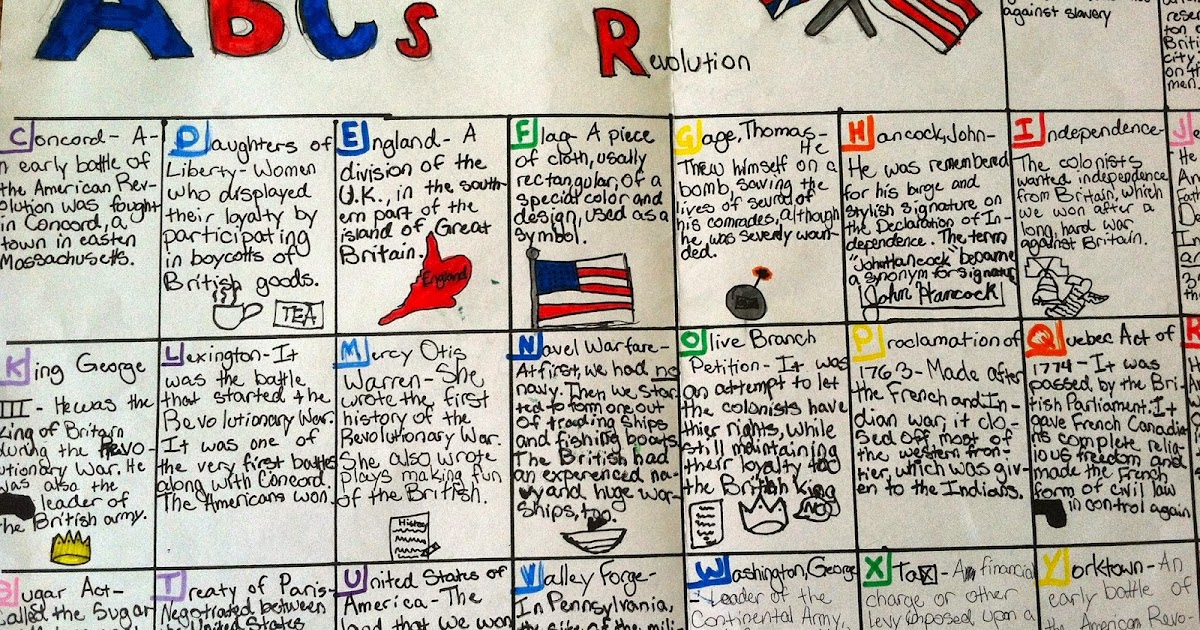 ABCs
Revolution
against slavery
Concord- A-
n early battle of
the American Rev-
olution was fought
in Concord, a
town in easten
Massachusetts.
Daughters of
Liberty- Women
who displayed
their loyalty by
participating
in boycotts of
British goods.
TEA
England- A
division of the
U.K., in the south-
ern part of the
island of Great
Britain.
England
Flag- A piece
of cloth, usally
rectangular, of a
special color and
design, used as a
symbol.
Gage, Thomas-
He
Threw himself on a
bomb, saving the
lives of several of
his comrades, although
he was severly woun-
ded.
Hancock, John-
He was remembered
for his large and
stylish signature on
the Declaration of In-
dependence. The term
"John Hancock" became
a synonym for signature
John Hancock
Independence-
The colonists
wanted independence
from Britain, which
we won after a
long, hard war
against Britain.
King George
III - He was the
king of Britain
during the Revo-
utionary War. He
was also the
leader of
the British army.
Lexington- It
was the battle
that started the
Revolutionary War.
It was one of
the very first battles
along with Concord.
The Americans won.
Mercy Otis
Warren- She
wrote the first
history of the
Revolutionary War.
She also wrote
plays making fun
of the British.
History
Navel Warfare-
At first, we had no
navy. Then we star-
ted to form one out
of trading ships
and fishing boats.
The British had
an experienced na-
vy and huge war-
ships, too.
Olive Branch
Petition- It was
an attempt to let
the colonists have
thier rights, while
still maintaining
their loyalty too
the British king
NO
Proclamation of
1763- Made after
the French and In-
dian war, it clo-
sed off most of
the western fron-
tier, which was giv-
en to the Indians.
Quebec Act of
1774- It was
passed by the Bri-
tish Parliament. It
gave French Canadia
ns complete relig-
ious freedom and
made the French
form of civil law
in control again
Sugar Act-
Called the Sugar
Treaty of Paris-
Negotiated between
United States
United States of
America- The
land that we won
Valley Forge-
In Pennsylvania,
Washington, George
- Leader of the
Continental Army,
Tax - An financial
charge or other
levy imposed upon a
Yorktown- An
early battle of
the American Revo-